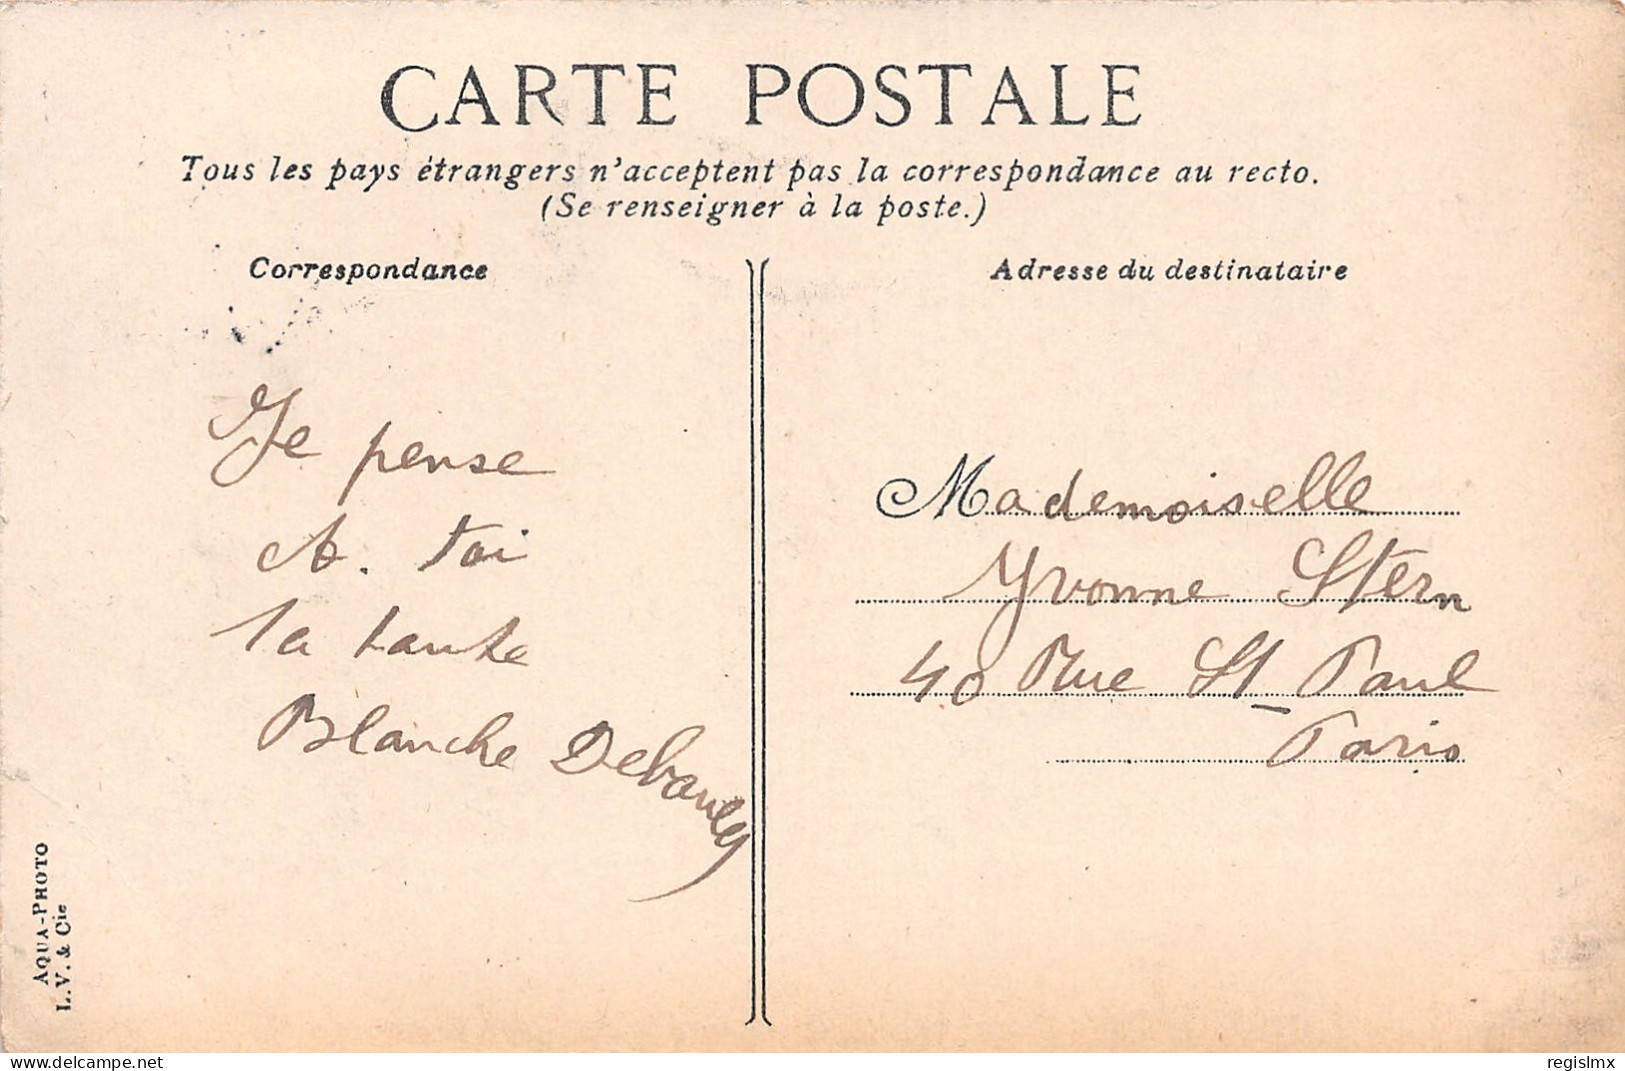 CARTE POSTALE
Tous les pays étrangers n'acceptent pas la correspondance au recto.
(Se renseigner à la poste.)
Correspondance
Je pense
A. toi
Ta tante
Blanche
Adresse du destinataire
Mademoiselle
Yvonne Stern
40 Rue St Paul
Paris
AQUA-PHOTO
L.V. & Cie
delcampe.net
regislmx